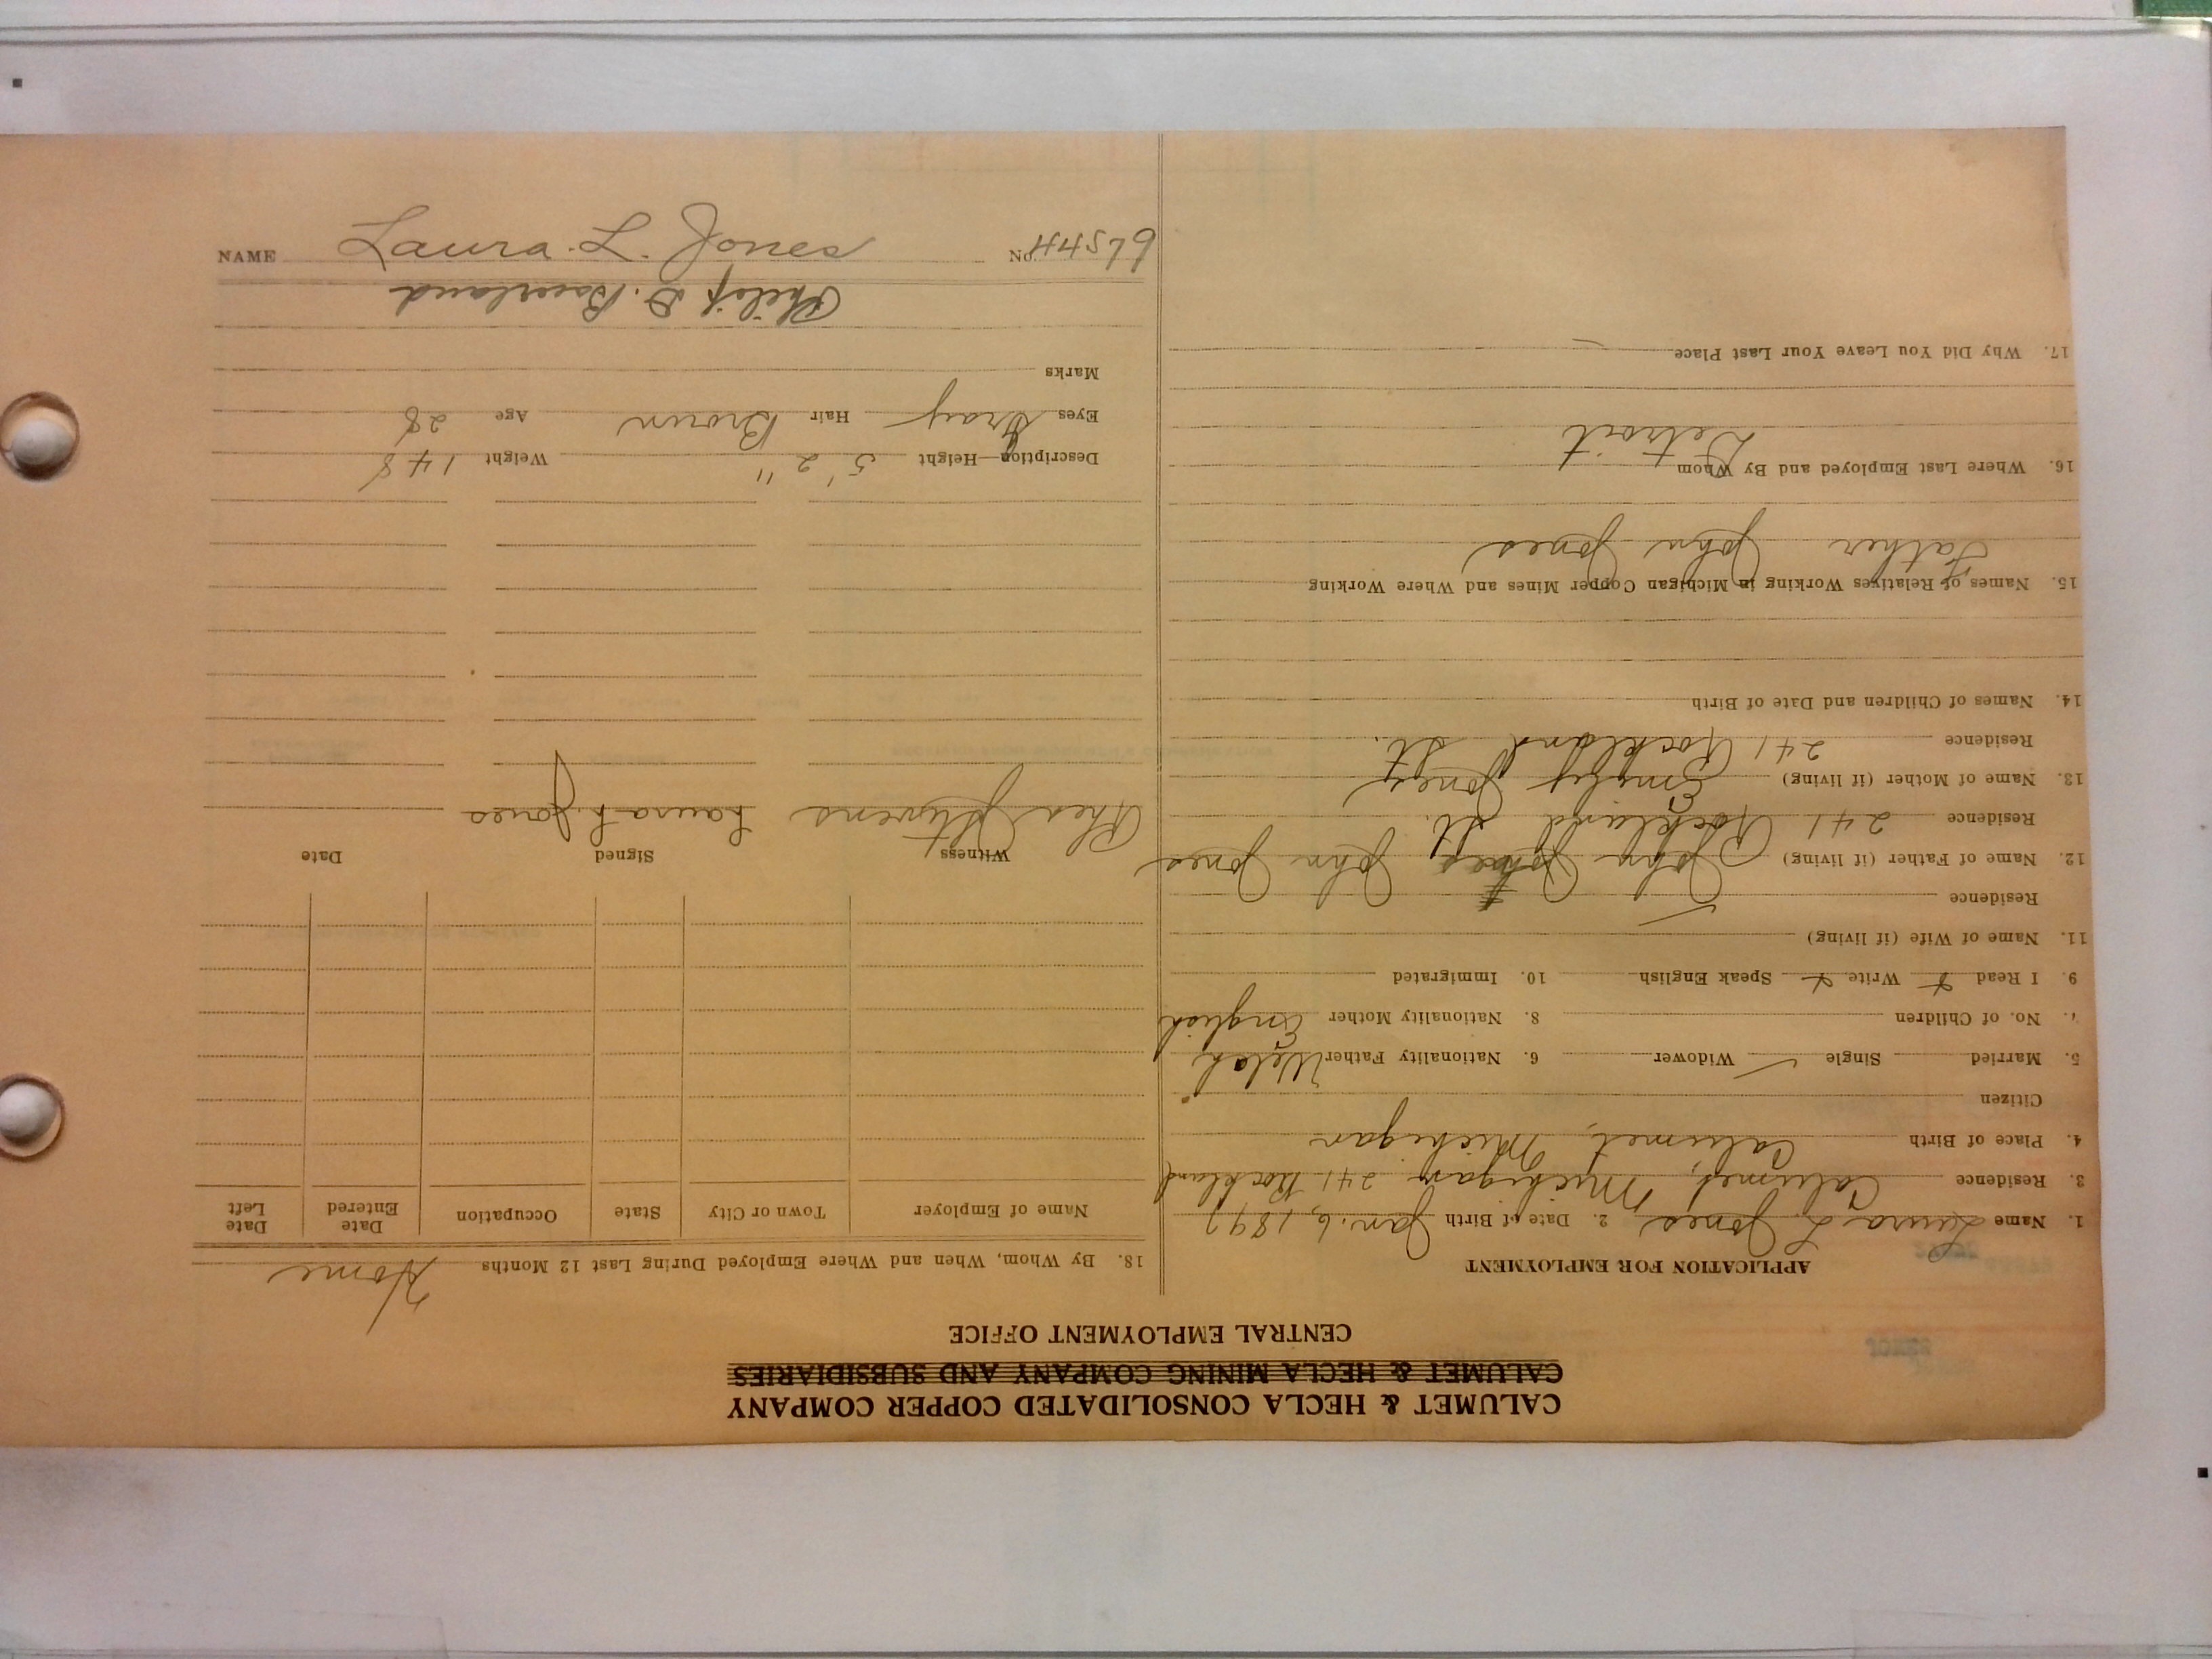 CALUMET & HECLA CONSOLIDATED COPPER COMPANY
CALUMET & HECLA MINING COMPANY AND SUBSIDIARIES
CENTRAL EMPLOYMENT OFFICE
APPLICATION FOR EMPLOYMENT
1. Name Laura L. Jones 2. Date of Birth Jan. 6, 1897
3. Residence Calumet, Michigan 241 Rockland
4. Place of Birth Calumet, Michigan
Citizen
5. Married Single ✓ Widower 6. Nationality Father Welsh
7. No. of Children 8. Nationality Mother English
9. I Read x Write x Speak English 10. Immigrated
11. Name of Wife (if living)
Residence
12. Name of Father (if living) John Jones John Jones
Residence 241 Rockland St.
13. Name of Mother (if living) Emily Jones
Residence 241 Rockland St.
14. Names of Children and Date of Birth
15. Names of Relatives Working in Michigan Copper Mines and Where Working
Father John Jones
16. Where Last Employed and By Whom
Detroit
17. Why Did You Leave Your Last Place
18. By Whom, When and Where Employed During Last 12 Months Home
Name of Employer Town or City State Occupation Date Entered Date Left
Witness Signed Date
Rhea Stivens Laura L. Jones
Description—Height 5' 2" Weight 148
Eyes Gray Hair Brown Age 28
Marks
Philip D.
NAME Laura L. Jones No.